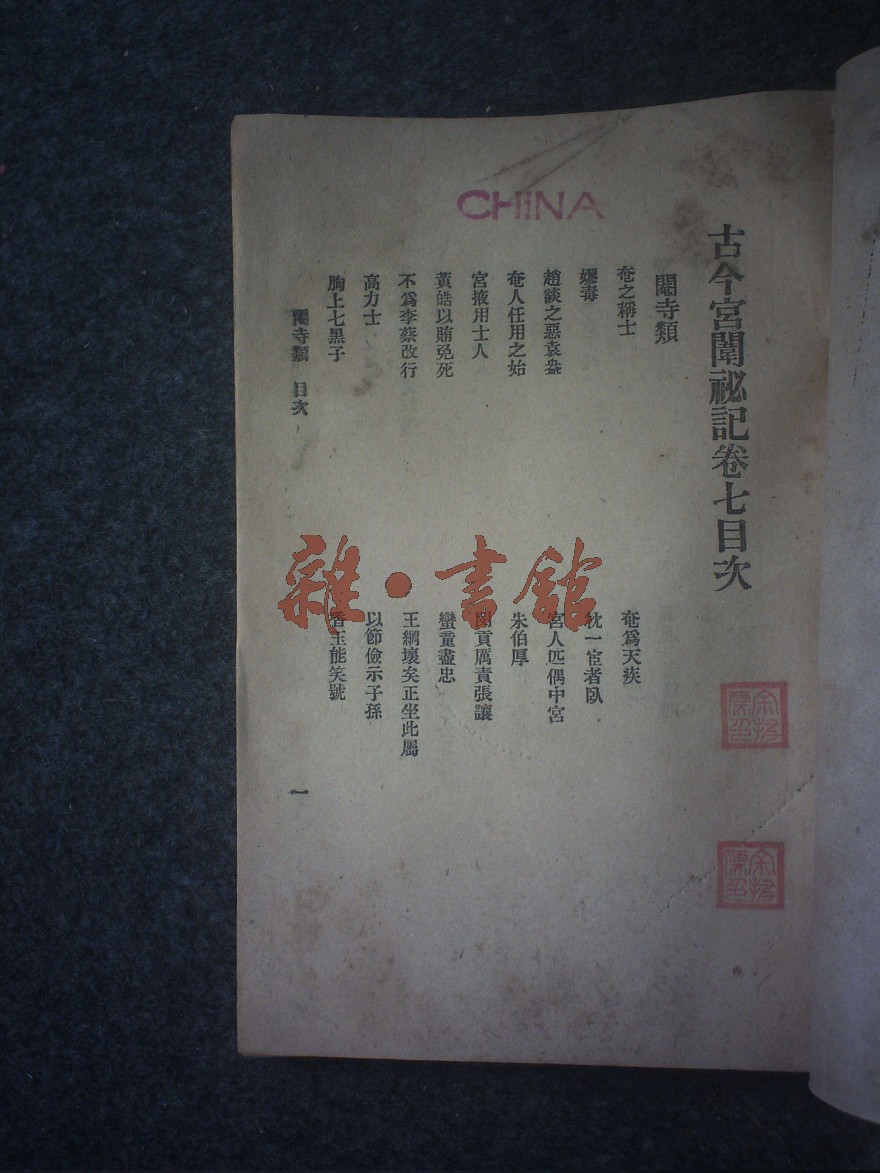 CHINA
古今宮闈祕記卷七目次
閹寺類
奄之稱士
奄爲天疾
嫪毒
枕一宦者臥
趙談之惡袁盎
宮人匹偶中宮
奄人任用之始
朱伯厚
宮掖用士人
閔貢厲責張讓
黃皓以賄免死
蠻童盡忠
不爲李蔡改行
王綱壞矣正坐此屬
高力士
以節儉示子孫
胸上七黑子
香玉能笑號
閹寺類 目次
一
雜·書館